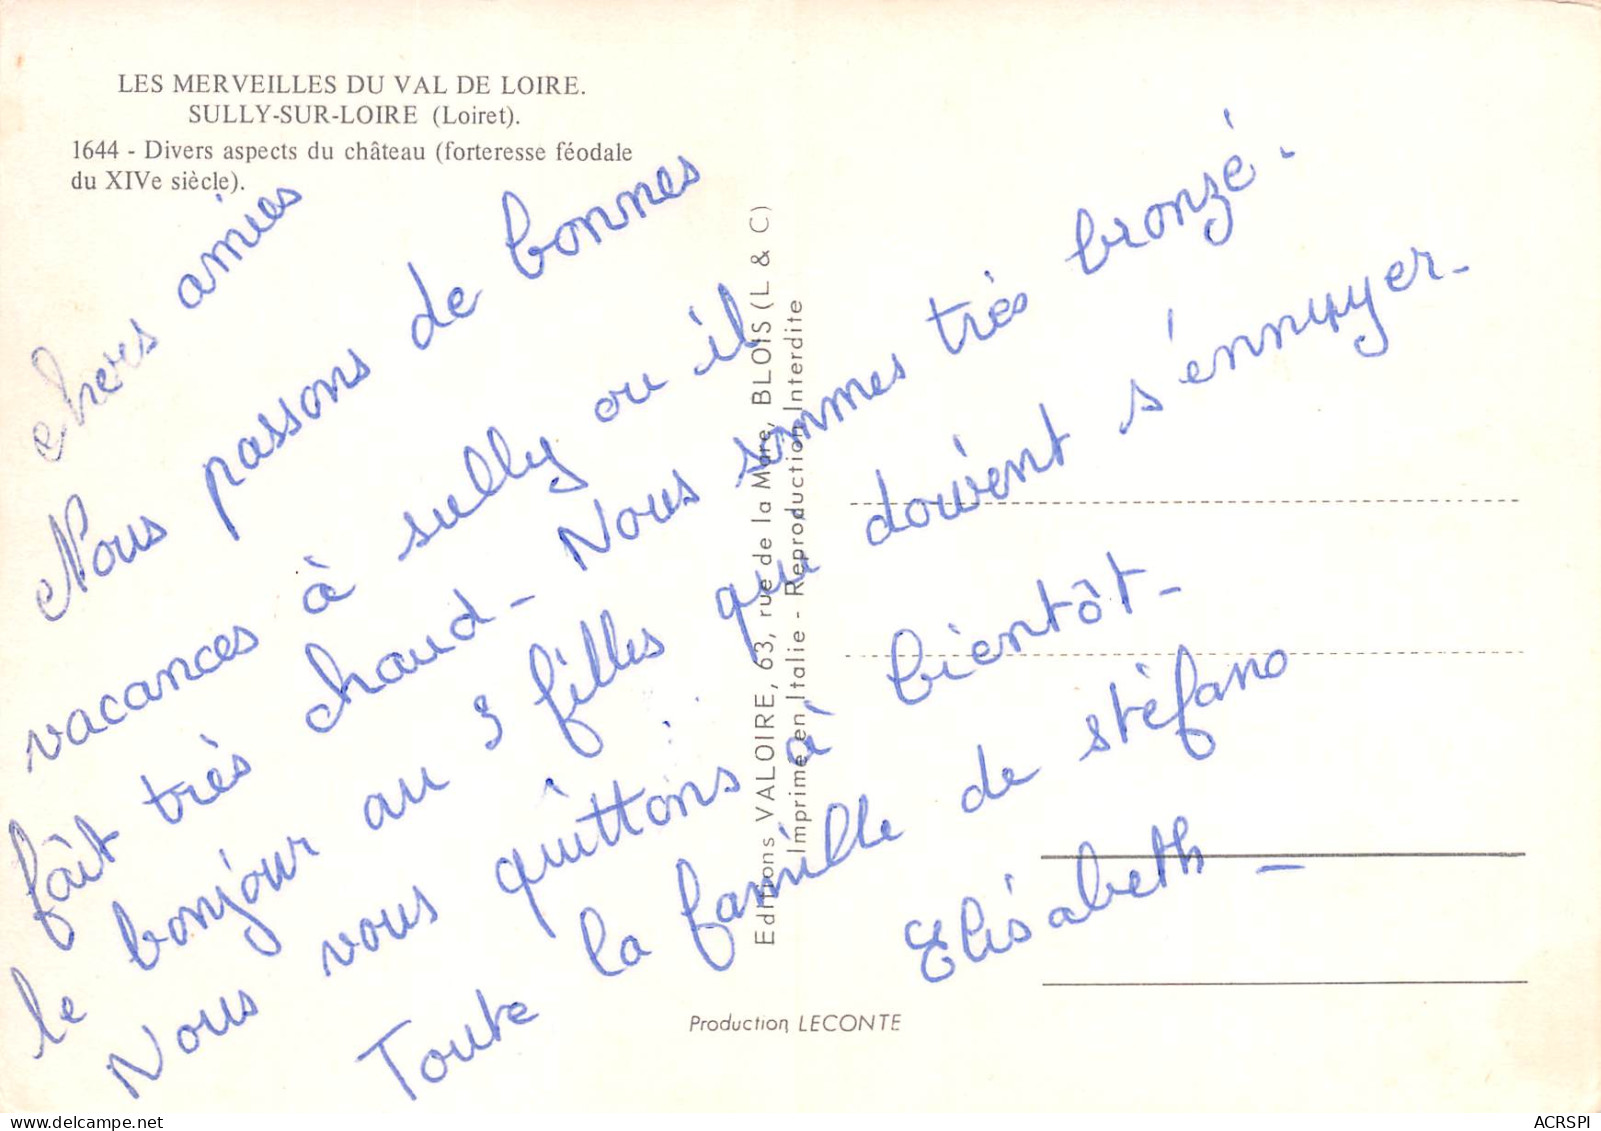 LES MERVEILLES DU VAL DE LOIRE.
SULLY-SUR-LOIRE (Loiret).
1644 - Divers aspects du château (forteresse féodale
du XIVe siècle).
chers amies
Nous passons de bonnes
vacances à sully ou il
fâit très chaud - Nous sommes très bronzé -
le bonjour au 3 filles qui doivent s'ennuyer -
Nous vous quittons à bientôt -
Toute la famille de stéfano
Elisabeth -
Editions VALOIRE, 63, rue de la Mare, BLOIS (L & C)
Imprimé en Italie - Reproduction Interdite
Production LECONTE
ACRSPI